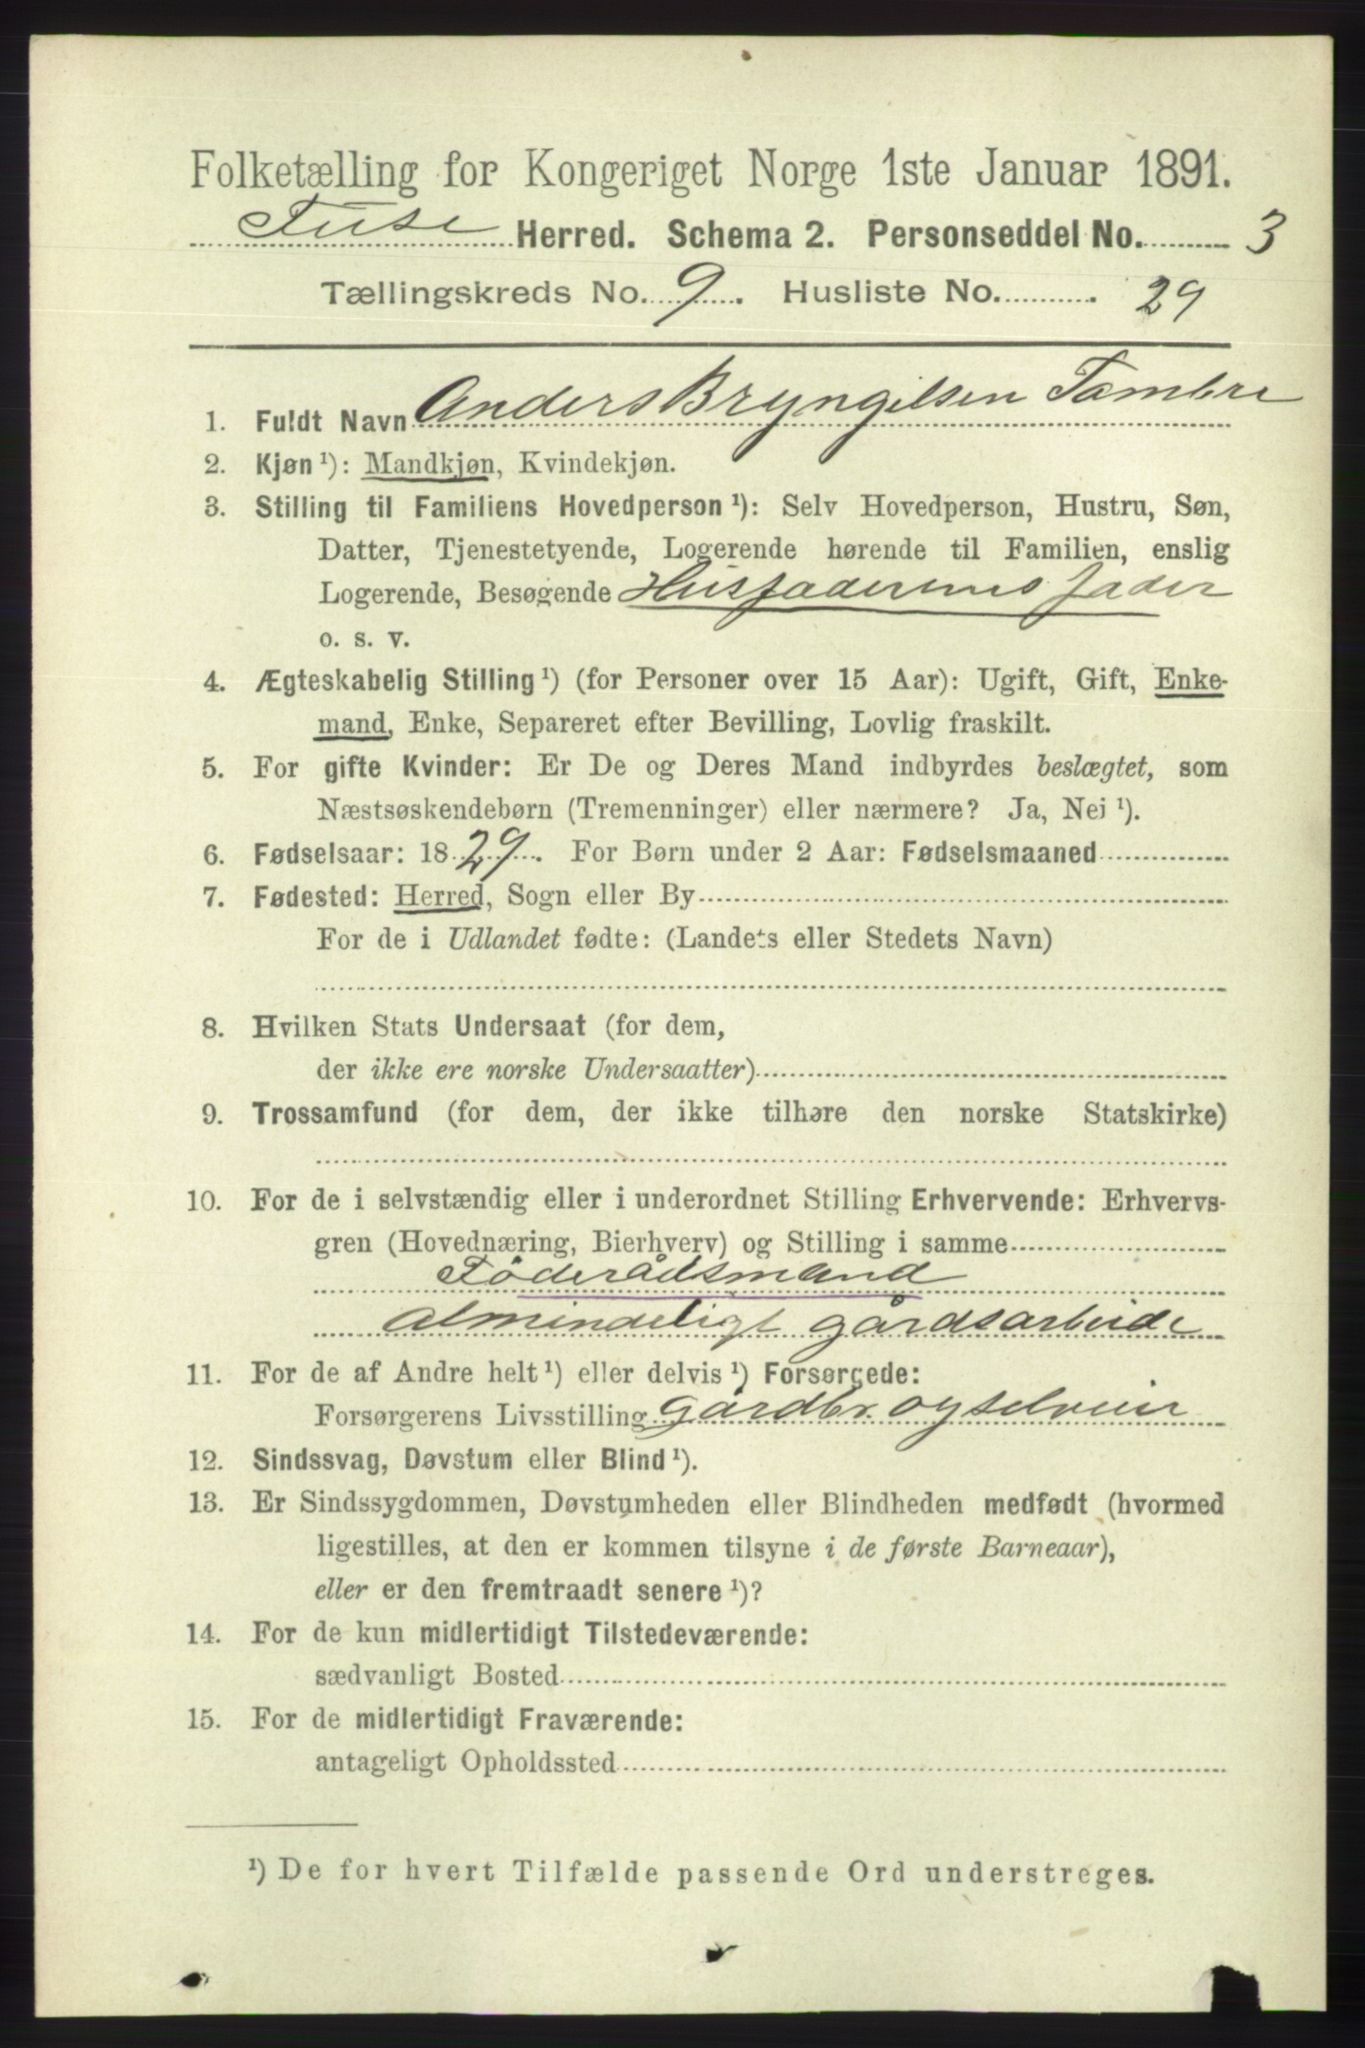 Folketælling for Kongeriget Norge 1ste Januar 1891.
Fuse Herred. Schema 2. Personseddel No. 3
Tællingskreds No. 9. Husliste No. 29
1. Fuldt Navn Anders Bryngilsen Tombre
2. Kjøn ¹): Mandkjøn, Kvindekjøn.
3. Stilling til Familiens Hovedperson ¹): Selv Hovedperson, Hustru, Søn,
Datter, Tjenestetyende, Logerende hørende til Familien, enslig
Logerende, Besøgende Husfaderens fader
o. s. v.
4. Ægteskabelig Stilling ¹) (for Personer over 15 Aar): Ugift, Gift, Enke-
mand, Enke, Separeret efter Bevilling, Lovlig fraskilt.
5. For gifte Kvinder: Er De og Deres Mand indbyrdes beslægtet, som
Næstsøskendebørn (Tremenninger) eller nærmere? Ja, Nei ¹).
6. Fødselsaar: 1829. For Børn under 2 Aar: Fødselsmaaned
7. Fødested: Herred, Sogn eller By
For de i Udlandet fødte: (Landets eller Stedets Navn)
8. Hvilken Stats Undersaat (for dem,
der ikke ere norske Undersaatter)
9. Trossamfund (for dem, der ikke tilhøre den norske Statskirke)
10. For de i selvstændig eller i underordnet Stilling Erhvervende: Erhvervs-
gren (Hovednæring, Bierhverv) og Stilling i samme
Föderådsmand
almindeligt gårdsarbeide
11. For de af Andre helt ¹) eller delvis ¹) Forsørgede:
Forsørgerens Livsstilling gårdbr. og selveier
12. Sindssvag, Døvstum eller Blind ¹).
13. Er Sindssygdommen, Døvstumheden eller Blindheden medfødt (hvormed
ligestilles, at den er kommen tilsyne i de første Barneaar),
eller er den fremtraadt senere ¹)?
14. For de kun midlertidigt Tilstedeværende:
sædvanligt Bosted
15. For de midlertidigt Fraværende:
antageligt Opholdssted
¹) De for hvert Tilfælde passende Ord understreges.